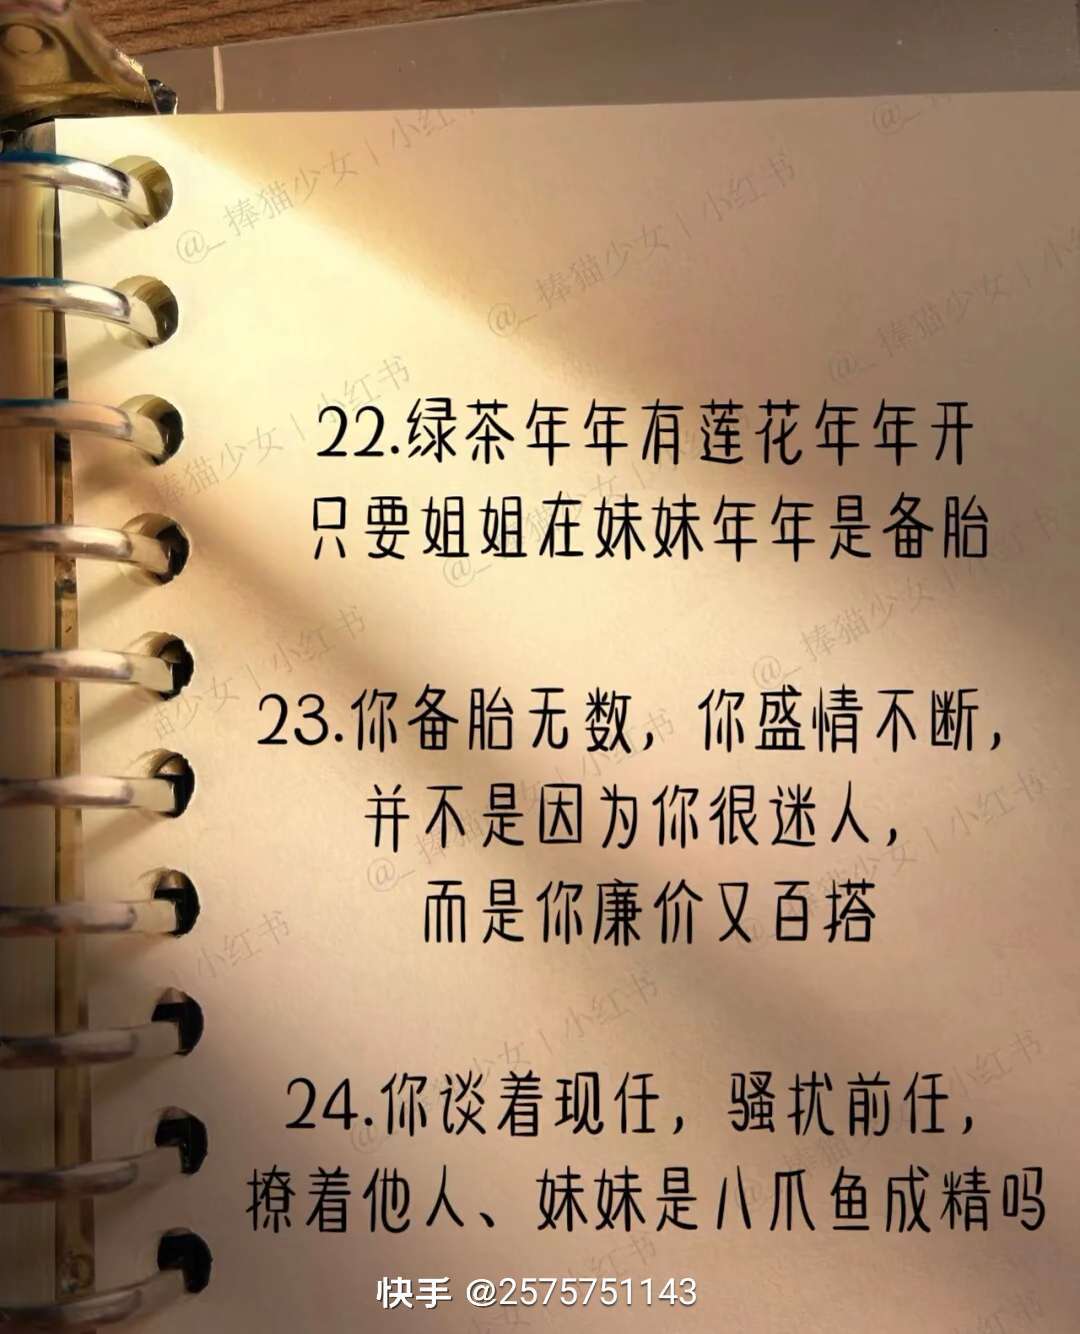 22.绿茶年年有莲花年年开
只要姐姐在妹妹年年是备胎
23.你备胎无数，你盛情不断，
并不是因为你很迷人，
而是你廉价又百搭
24.你谈着现任，骚扰前任，
撩着他人、妹妹是八爪鱼成精吗
快手 @2575751143
@_捧猫少女 | 小红书